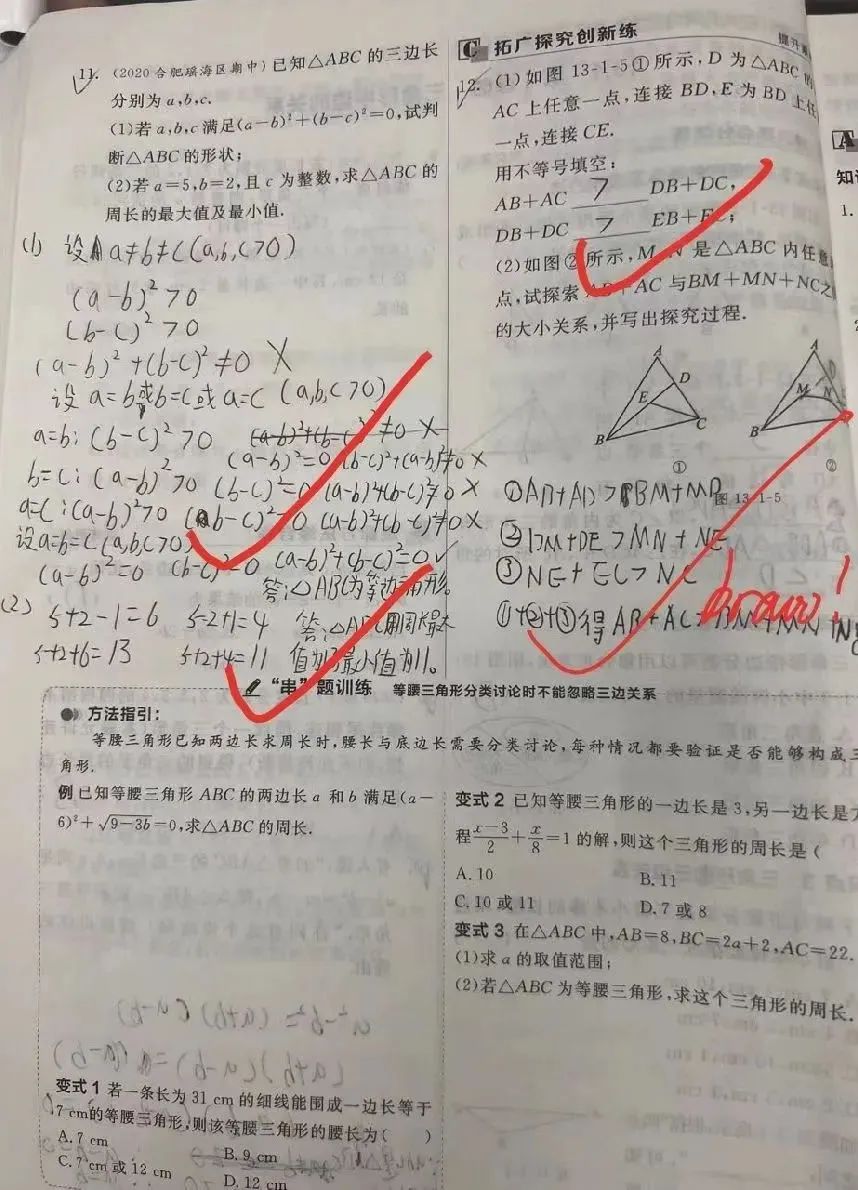 11. (2020 合肥瑶海区期中)已知△ABC 的三边长
分别为 a,b,c.
(1)若 a,b,c 满足(a−b)²+(b−c)²=0,试判
断△ABC 的形状;
(2)若 a=5,b=2,且 c 为整数,求△ABC 的
周长的最大值及最小值.
(1) 设 a≠b≠c(a,b,c>0)
(a-b)²>0
(b-c)²>0
(a-b)²+(b-c)²≠0 X
设 a=b或b=c或a=c (a,b,c>0)
a=b: (b-c)²>0
(a-b)²=0 (b-c)²+(a-b)²≠0 X
b=c: (a-b)²>0 (b-c)²=0 (a-b)²+(b-c)²≠0 X
a=c:(a-b)²>0
设a=b=c(a,b,c>0)
(a-b)²=0 (b-c)²=0 (a-b)²+(b-c)²=0✓
答:△ABC为等边三角形。
(2) 5+2-1=6 5-2+1=4 答:△ABC周长最大
5+2+6=13 5+2+4=11 值为13最小值为11。
C 拓广探究创新练
12. (1)如图 13-1-5①所示,D 为△ABC 的
AC 上任意一点,连接 BD,E 为 BD 上任
一点,连接 CE.
用不等号填空:
AB+AC > DB+DC,
DB+DC > EB+EC;
(2)如图②所示,M,N 是△ABC 内任意
点,试探索 AB+AC 与BM+MN+NC之
的大小关系,并写出探究过程.
A
D
E
B
C
①
A
M
N
B
②
图 13-1-5
①AD+AD>BM+MD
②DM+DE>MN+NE
③NE+EC>NC
①+②+③得 AB+AC>BM+MN+NC
bravo!
A
知
1.
“串”题训练 等腰三角形分类讨论时不能忽略三边关系
方法指引:
等腰三角形已知两边长求周长时,腰长与底边长需要分类讨论,每种情况都要验证是否能够构成三
角形.
例 已知等腰三角形 ABC 的两边长 a 和 b 满足(a−
6)²+√9−3b=0,求△ABC 的周长.
变式 1 若一条长为 31 cm 的细线能围成一边长等于
7 cm的等腰三角形,则该等腰三角形的腰长为( )
A. 7 cm B. 9 cm
C. 7 cm 或 12 cm D. 12 cm
变式 2 已知等腰三角形的一边长是 3,另一边长是方
程(x−3)/2+x/8=1 的解,则这个三角形的周长是(
A. 10 B. 11
C. 10 或 11 D. 7 或 8
变式 3 在△ABC 中,AB=8,BC=2a+2,AC=22.
(1)求 a 的取值范围;
(2)若△ABC 为等腰三角形,求这个三角形的周长.